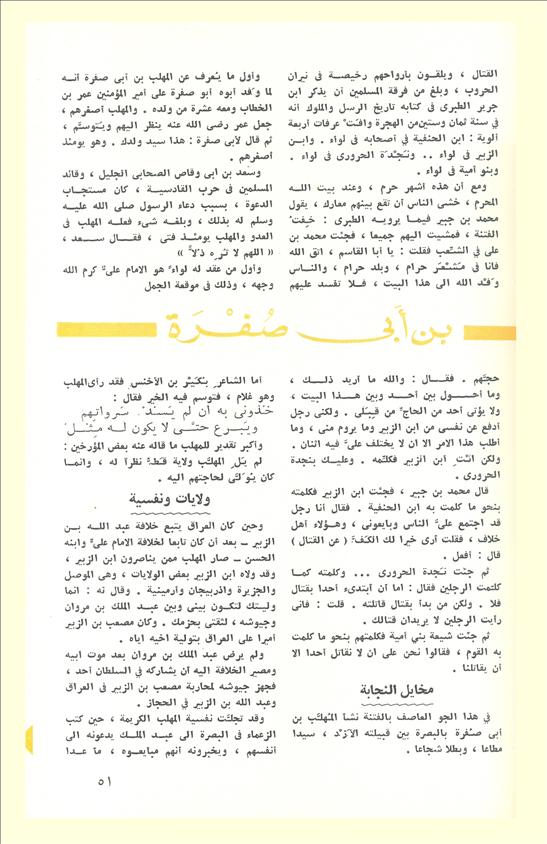 القتال ، ويلقون بأرواحهم رخيصة فى نيران
الحروب ، وبلغ من فرقة المسلمين أن يذكر ابن
جرير الطبرى فى كتابه تاريخ الرسل والملوك أنه
فى سنة ثمان وستين من الهجرة وافت عرفات أربعة
ألوية : ابن الحنفية فى أصحابه فى لواء . وابن
الزبير فى لواء .. ونجدة الحرورى فى لواء .
وبنو أمية فى لواء .
ومع أن هذه أشهر حرم ، وعند بيت الله
المحرم ، خشى الناس أن تقع بينهم معارك ، يقول
محمد بن جبير فيما يرويه الطبرى : خفت
الفتنة ، فمشيت اليهم جميعا ، فجئت محمد بن
على فى الشعب فقلت : يا أبا القاسم ، اتق الله
فانا فى مشعر حرام ، وبلد حرام ، والناس
وفد الله الى هذا البيت ، فلا تفسد عليهم
وأول ما يعرف عن المهلب بن أبى صفرة أنه
لما وفد أبوه أبو صفرة على أمير المؤمنين عمر بن
الخطاب ومعه عشرة من ولده . والمهلب أصغرهم ،
جعل عمر رضى الله عنه ينظر اليهم ويتوسم ،
ثم قال لأبى صفرة : هذا سيد ولدك . وهو يومئذ
أصغرهم .
وسعد بن أبى وقاص الصحابى الجليل ، وقائد
المسلمين فى حرب القادسية ، كان مستجاب
الدعوة ، بسبب دعاء الرسول صلى الله عليه
وسلم له بذلك ، وبلغه شىء فعله المهلب فى
العدو والمهلب يومئذ فتى ، فقال سعد ،
« اللهم لا تره ذلا »
وأول من عقد له لواء هو الامام على كرم الله
وجهه ، وذلك فى موقعة الجمل
بن أبى صفرة
حجهم . فقال : والله ما أريد ذلك ،
وما أحول بين أحد وبين هذا البيت ،
ولا يؤتى أحد من الحاج من قبلى . ولكنى رجل
أدفع عن نفسى من ابن الزبير وما يروم منى ، وما
أطلب هذا الأمر الا ان لا يختلف على فيه اثنان .
ولكن ائت ابن الزبير فكلمه . وعليك بنجدة
الحرورى .
قال محمد بن جبير ، فجئت ابن الزبير فكلمته
بنحو ما كلمت به ابن الحنفية . فقال أنا رجل
قد اجتمع على الناس وبايعونى ، وهؤلاء أهل
خلاف ، فقلت أرى خيرا لك الكف ( عن القتال )
قال : أفعل .
ثم جئت نجدة الحرورى ... وكلمته كما
كلمت الرجلين فقال : أما أن أبتدىء أحدا بقتال
فلا . ولكن من بدأ بقتال قاتلته . قلت : فانى
رأيت الرجلين لا يريدان قتالك .
ثم جئت شيعة بنى أمية فكلمتهم بنحو ما كلمت
به القوم ، فقالوا نحن على ان لا نقاتل أحدا الا
أن يقاتلنا .
مخايل النجابة
فى هذا الجو العاصف بالفتنة نشأ المهلب بن
أبى صفرة بالبصرة بين قبيلته الأزد ، سيدا
مطاعا ، وبطلا شجاعا .
أما الشاعر بكير بن الأخنس فقد رأى المهلب
وهو غلام ، فتوسم فيه الخير فقال :
خذونى به ان لم يسد سرواتهم
ويبرع حتى لا يكون له مثل
وأكبر تقدير للمهلب ما قاله عنه بعض المؤرخين :
لم يل المهلب ولاية قط نظرا له ، وانما
كان يولى لحاجتهم اليه .
ولايات ونفسية
وحين كان العراق يتبع خلافة عبد الله بن
الزبير ـ بعد أن كان تابعا لخلافة الامام على وابنه
الحسن ـ صار المهلب ممن يناصرون ابن الزبير ،
وقد ولاه ابن الزبير بعض الولايات ، وهى الموصل
والجزيرة واذربيجان وأرمينية . وقال له : انما
وليتك لتكون بينى وبين عبد الملك بن مروان
وجيوشه ، لثقتى بحزمك . وكان مصعب بن الزبير
أميرا على العراق بتولية أخيه اياه .
ولم يرض عبد الملك بن مروان بعد موت أبيه
ومصير الخلافة اليه أن يشاركه فى السلطان أحد ،
فجهز جيوشه لمحاربة مصعب بن الزبير فى العراق
وعبد الله بن الزبير فى الحجاز .
وقد تجلت نفسية المهلب الكريمة ، حين كتب
الزعماء فى البصرة الى عبد الملك يدعونه الى
أنفسهم ، ويخبرونه أنهم مبايعوه ، ما عدا
٥١